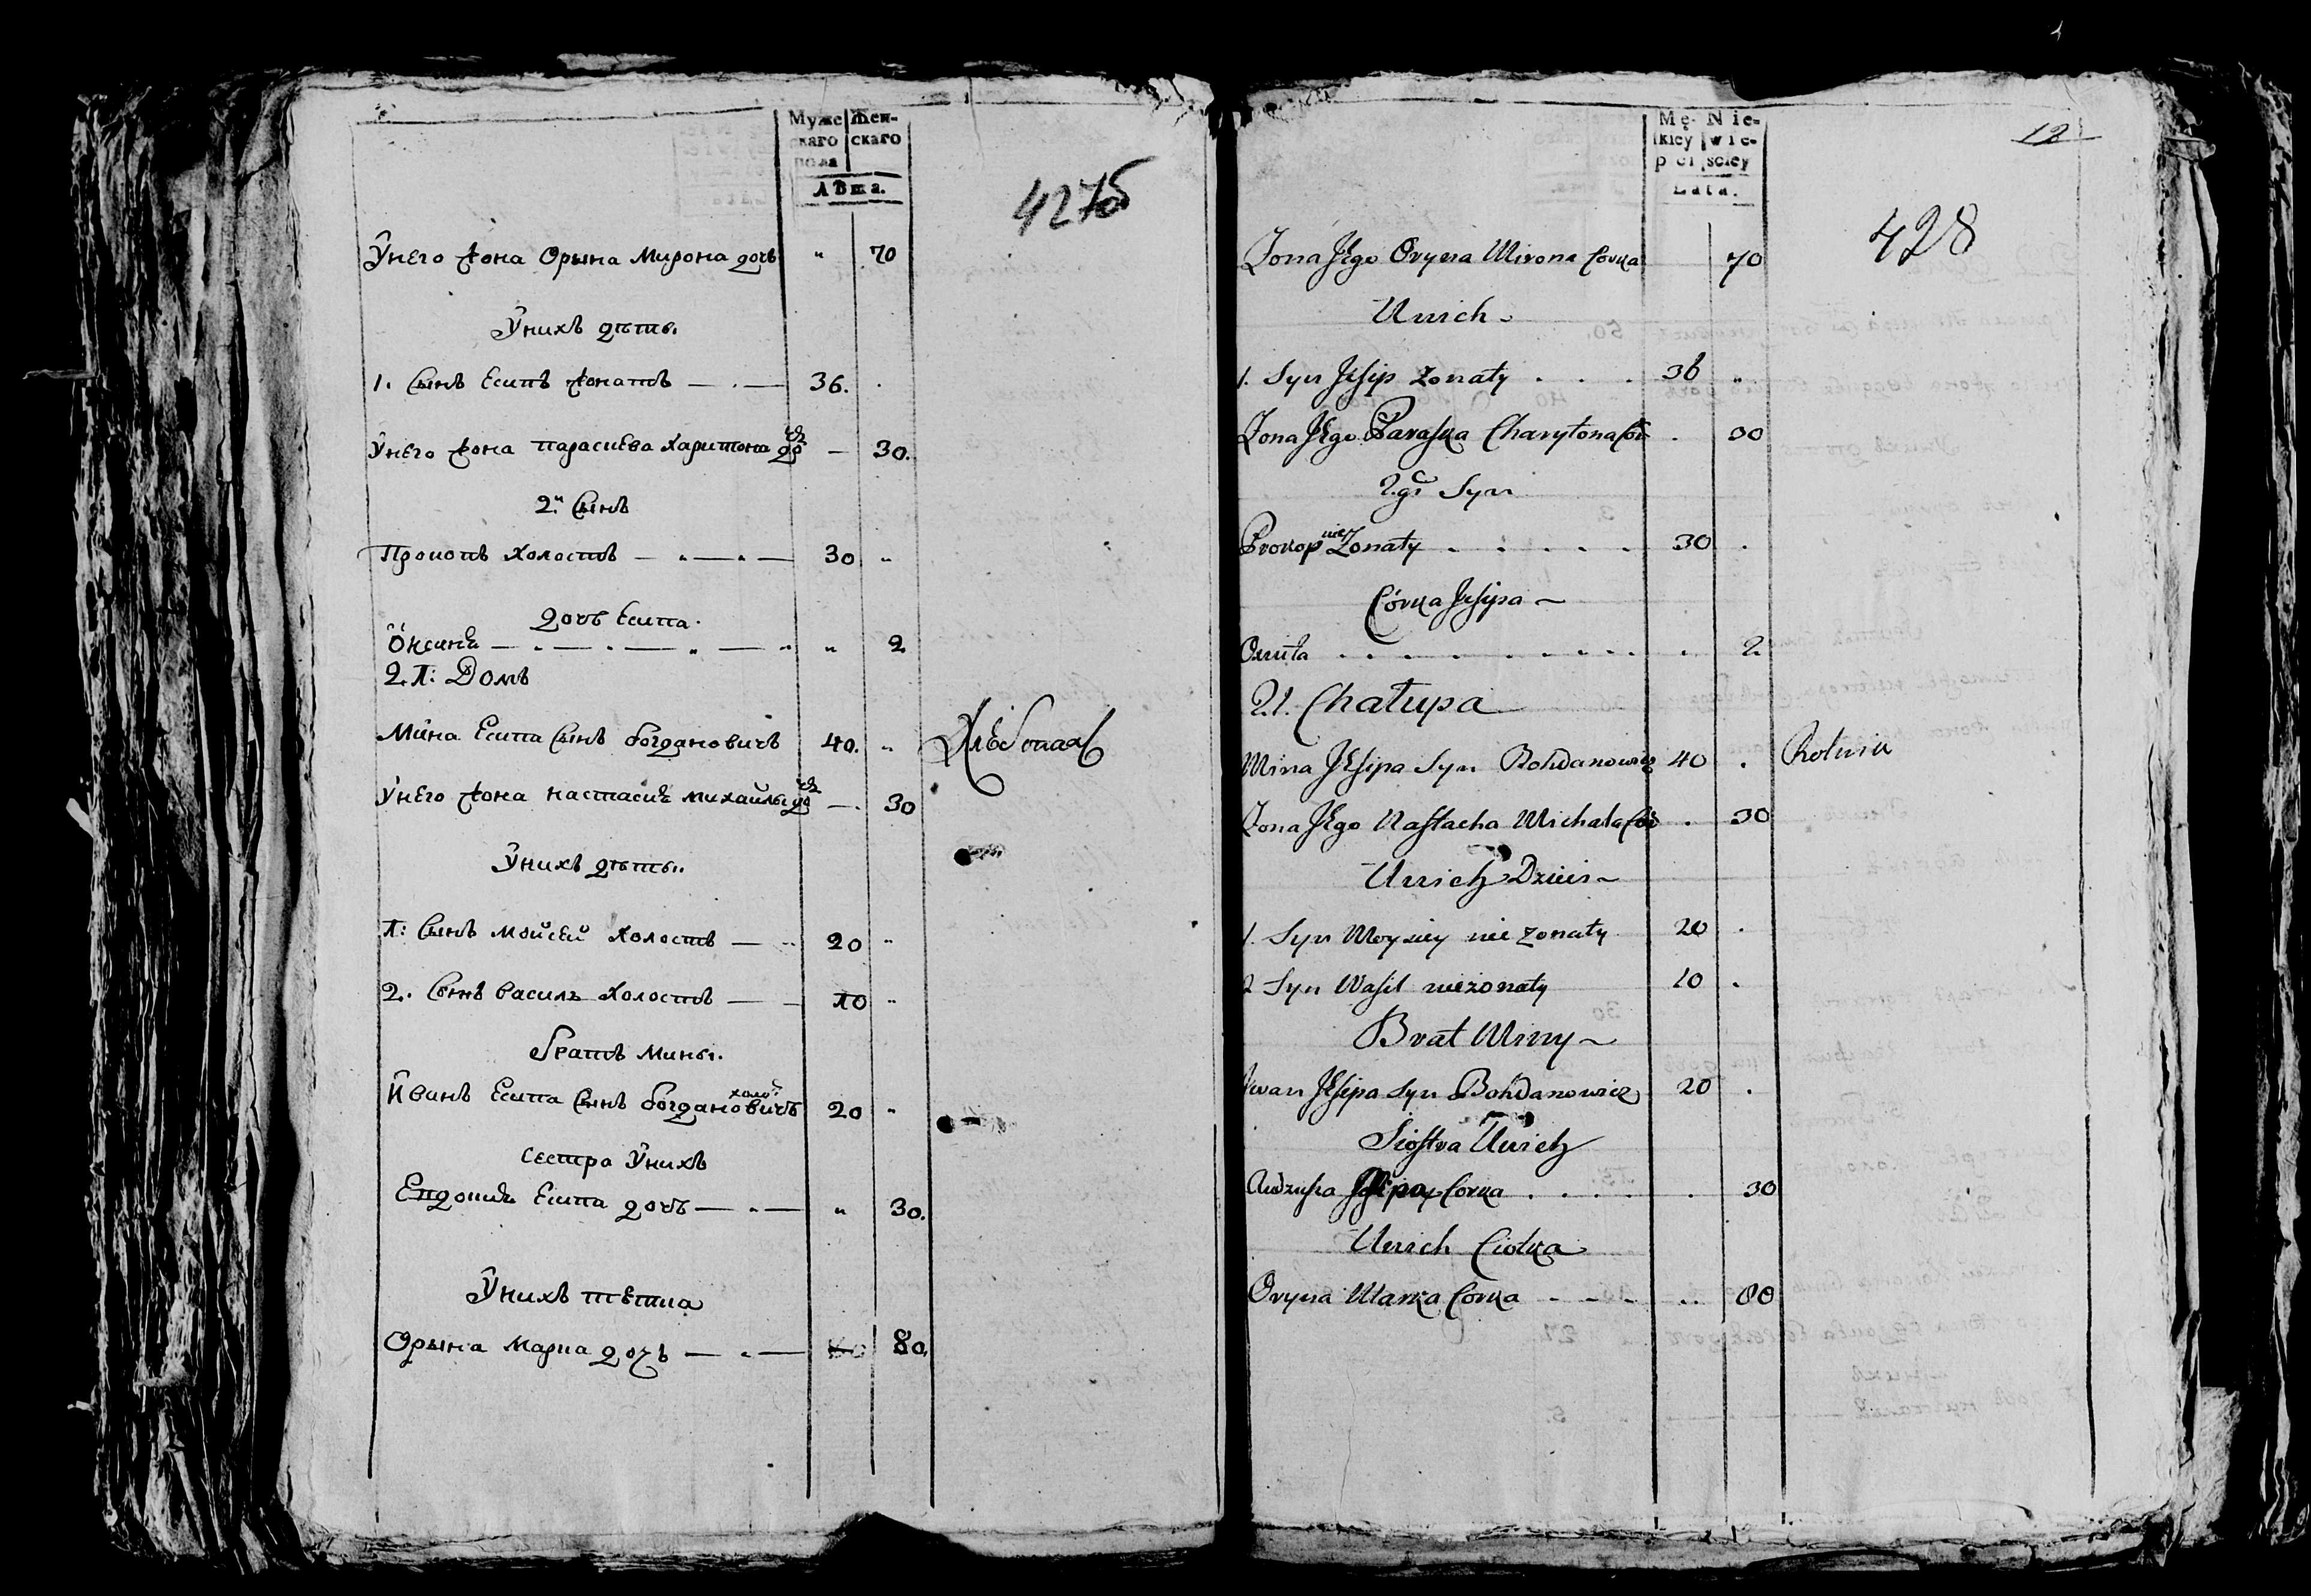 Муже Жен-
скаго скаго
пола
Лѣта.
427б
Ӱнего жона Орына Мирона дочь " 70
Ӱнихъ дѣты.
1. Сынъ Есипъ жонатъ 36.
Ӱнего жона парасиева Харитона дочь — 30.
2й Сынъ
Прокопъ холостъ 30 "
дочь Есипа.
Оксина " 2
21: Домъ
Мина Есипа Сынъ Богдановичъ 40. " Хлебопаш
Ӱнего жона настасия Михайлы дочь — 30
Ӱнихъ дѣты.
1: Сынъ Мойсей Холостъ 20 "
2. Сынъ Василь Холостъ 10 "
Братъ Мины.
Иванъ Есипа Сынъ Богдановичъ холо 20 "
Сестра Ӱнихъ
Евдокия Есипа дочь " 30.
Ӱнихъ тетка
Орына Марка дочь 80.
Mę- Nie-
kiey wie-
płci sciey
Lata.
12
428
Zona Jego Oryna Mirona Corka 70
Unich
1. Syn Jesip Zonaty 36 "
Zona Jego Paraska Charytona Cor 30
2gi Syn
Prokop nie Zonaty 30
Córka Jesipa
2
21. Chałupa
Mina Jesipa Syn Bohdanowicz 40 Rolnik
Zona Jego Nastacha Michała Cor 30
Unich Dzieci
1. Syn Moysiey nie Zonaty 20
2 Syn Wasil nie zonaty 10
Brat Miny
Iwan Jesipa Syn Bohdanowicz 20
Siostra Unich
Jesipa Corka 30
Unich Ciotka
Oryna Marka Corka 80